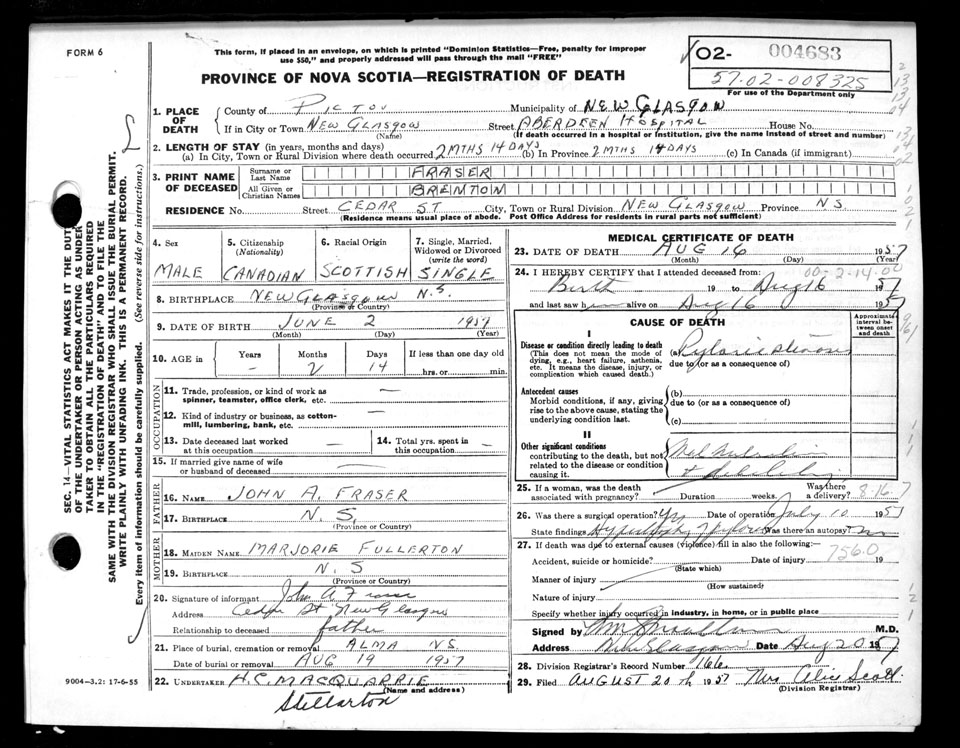 FORM 6
This form, if placed in an envelope, on which is printed "Dominion Statistics—Free, penalty for improper
use $50," and properly addressed will pass through the mail "FREE"
PROVINCE OF NOVA SCOTIA—REGISTRATION OF DEATH
02- 004683
57-02-008325
For use of the Department only
1. PLACE OF DEATH
County of PICTOU Municipality of NEW GLASGOW
If in City or Town NEW GLASGOW Street ABERDEEN HOSPITAL House No.
(Name) (If death occurred in a hospital or institution, give the name instead of street and number)
2. LENGTH OF STAY (in years, months and days)
(a) In City, Town or Rural Division where death occurred 2 MTHS 14 DAYS (b) In Province 2 MTHS 14 DAYS (c) In Canada (if immigrant)
3. PRINT NAME OF DECEASED
Surname or Last Name FRASER
All Given or Christian Names BRENTON
RESIDENCE No. Street CEDAR ST City, Town or Rural Division NEW GLASGOW Province N.S.
(Residence means usual place of abode. Post Office Address for residents in rural parts not sufficient)
4. Sex
MALE
5. Citizenship
(Nationality)
CANADIAN
6. Racial Origin
SCOTTISH
7. Single, Married,
Widowed or Divorced
(write the word)
SINGLE
8. BIRTHPLACE NEW GLASGOW N.S.
(Province or Country)
9. DATE OF BIRTH JUNE 2 1957
(Month) (Day) (Year)
10. AGE IN
Years Months Days If less than one day old
- 2 14 hrs. or min.
OCCUPATION
11. Trade, profession, or kind of work as
spinner, teamster, office clerk, etc. —
12. Kind of industry or business, as cotton-
mill, lumbering, bank, etc. —
13. Date deceased last worked
at this occupation —
14. Total yrs. spent in
this occupation —
15. If married give name of wife
or husband of deceased —
FATHER
16. NAME JOHN A. FRASER
17. BIRTHPLACE N.S.
(Province or Country)
MOTHER
18. MAIDEN NAME MARJORIE FULLERTON
19. BIRTHPLACE N.S
(Province or Country)
20. Signature of informant John A Fraser
Address Cedar St New Glasgow
Relationship to deceased father
21. Place of burial, cremation or removal ALMA NS.
Date of burial or removal AUG 19 1957
22. UNDERTAKER H.C. MACQUARRIE
(Name and address)
Stellarton
9004—3.2: 17-6-55
MEDICAL CERTIFICATE OF DEATH
23. DATE OF DEATH AUG 16 1957
(Month) (Day) (Year)
24. I HEREBY CERTIFY that I attended deceased from:
00-2-14-00
Birth 19 to Aug 16 1957
and last saw him alive on Aug 16 1957
CAUSE OF DEATH
Approximate
interval be-
tween onset
and death
I
Disease or condition directly leading to death
(This does not mean the mode of
dying, e.g., heart failure, asthenia,
etc. It means the disease, injury, or
complication which caused death.)
(a) Pyloric stenosis
due to (or as a consequence of)
Antecedent causes
Morbid conditions, if any, giving
rise to the above cause, stating the
underlying condition last.
(b)
due to (or as a consequence of)
(c)
II
Other significant conditions
contributing to the death, but not
related to the disease or condition
causing it.
Malnutrition
& debility
25. If a woman, was the death
associated with pregnancy? Duration weeks. Was there
a delivery? 8-16-7
26. Was there a surgical operation? Yes Date of operation July 10 1957
State findings Hypertrophy Pylorus Was there an autopsy?
27. If death was due to external causes (violence) fill in also the following—
756.0
Accident, suicide or homicide? Date of injury 19
(State which)
Manner of injury
(How sustained)
Nature of injury
Specify whether injury occurred in industry, in home, or in public place
Signed by M.D.
Address New Glasgow Date Aug 20 1957
28. Division Registrar's Record Number 166
29. Filed AUGUST 20th 1957 Mrs Alice Scott
(Division Registrar)
SEC. 14—VITAL STATISTICS ACT MAKES IT THE DUTY
OF THE UNDERTAKER OR PERSON ACTING AS UNDER-
TAKER TO OBTAIN ALL THE PARTICULARS REQUIRED
IN THE "REGISTRATION OF DEATH" AND TO FILE THE
SAME WITH THE DIVISION REGISTRAR WHO SHALL ISSUE THE BURIAL PERMIT.
WRITE PLAINLY WITH UNFADING INK. THIS IS A PERMANENT RECORD.
Every item of information should be carefully supplied. (See reverse side for instructions.)